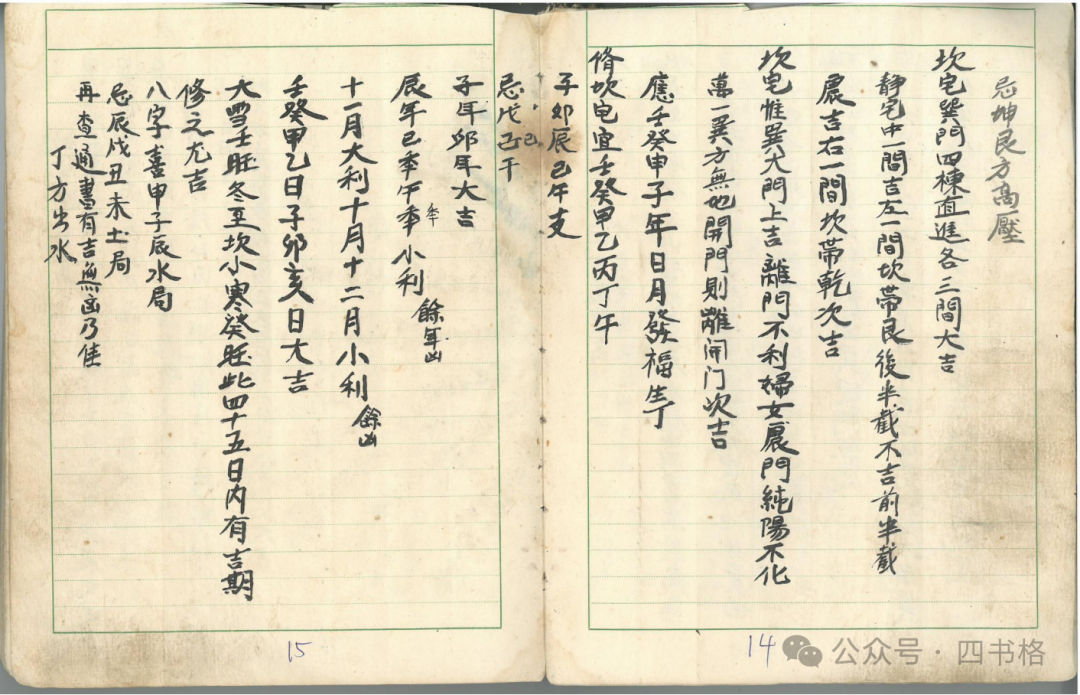 忌坤艮方高壓
坎宅巽門四棟直進各三間大吉
靜宅中一間吉左一間坎帶艮後半截不吉前半截
震吉右一間坎帶乾次吉
坎宅惟巽大門上吉離門不利婦女震門純陽不化
萬一巽方無地開門則離開门次吉
應壬癸申子年日月發福生丁
脩坎宅宜壬癸甲乙丙丁午
子卯辰巳午支
忌戊己干
子年卯年大吉
辰年巳年午年小利餘年凶
十一月大利十月十二月小利餘凶
壬癸甲乙日子卯亥日大吉
大雪壬旺冬至坎小寒癸旺此四十五日内有吉期
修之尤吉
八字喜申子辰水局
忌辰戊丑未土局
再查通書有吉無凶乃佳
丁方出水
15
14
公众号·四书格